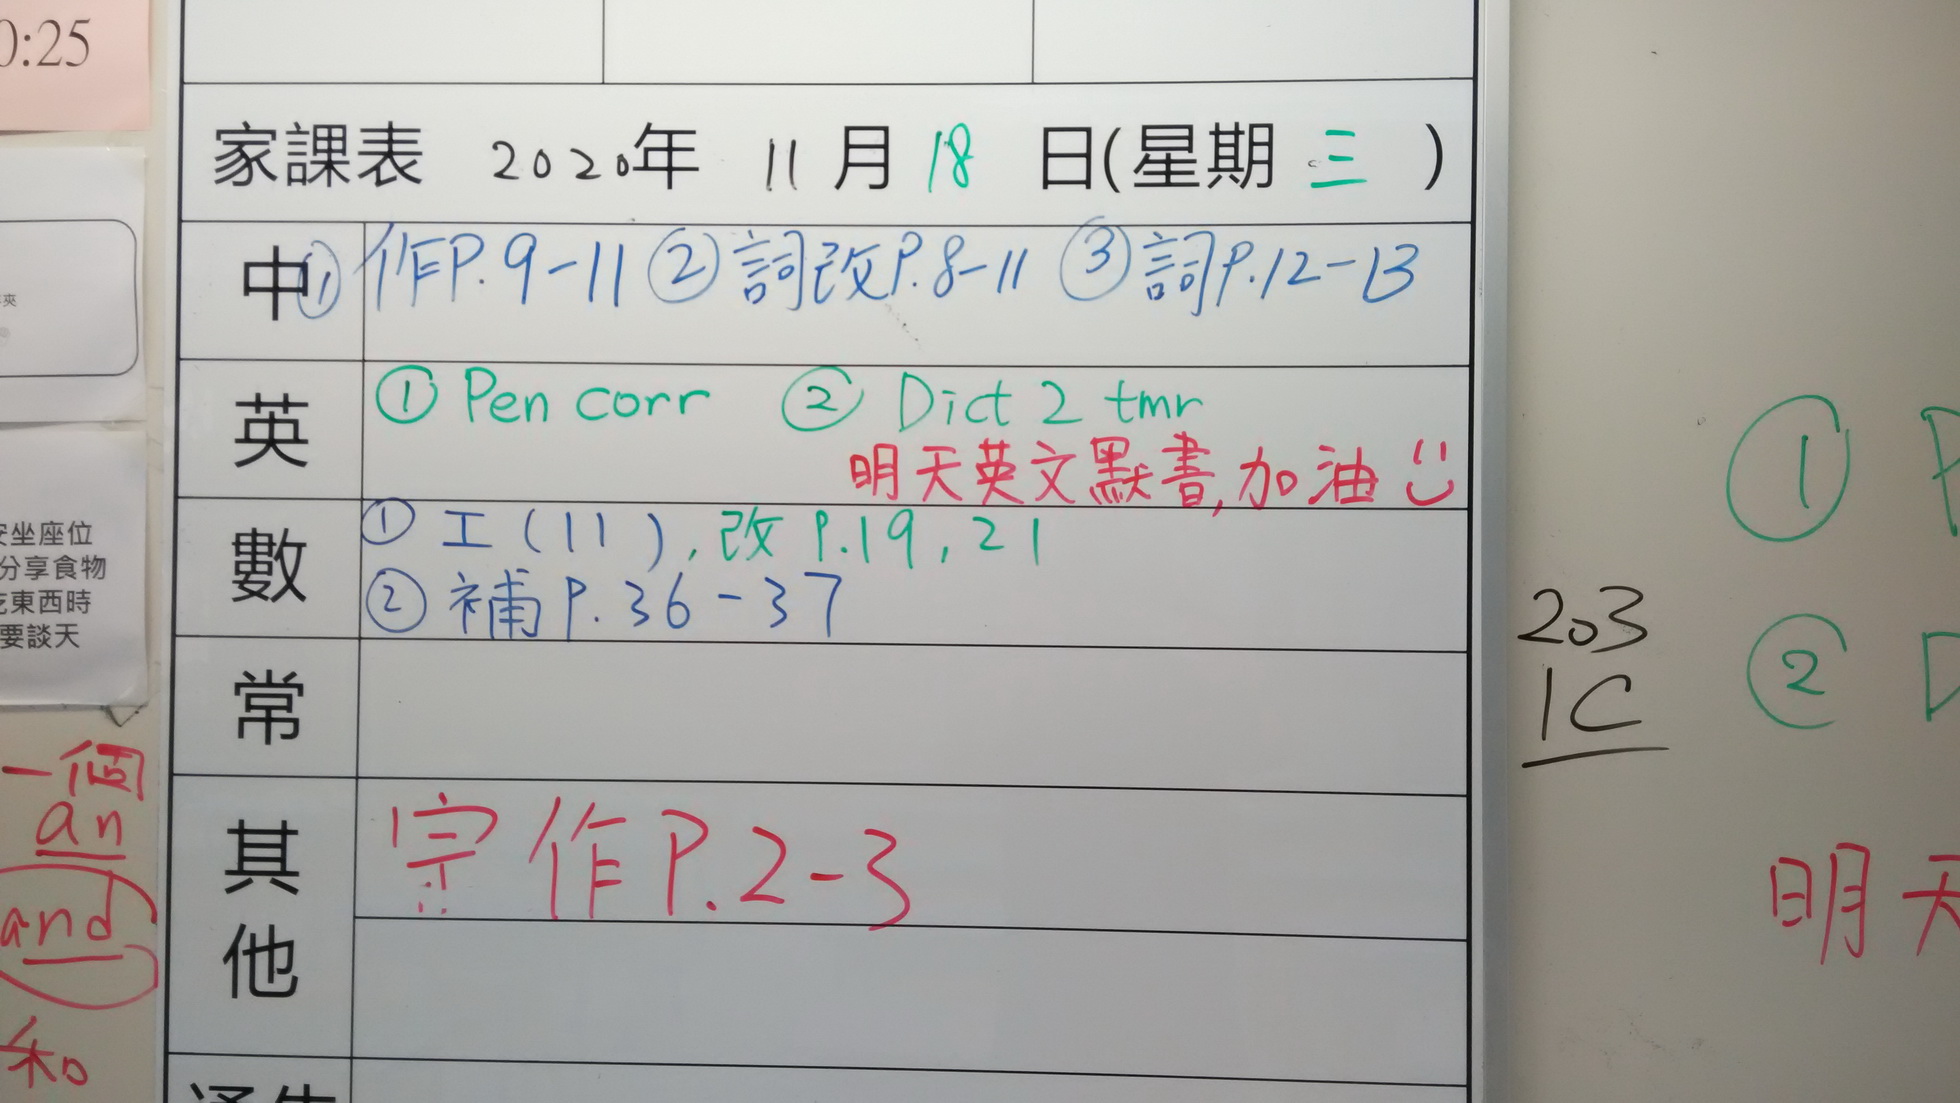 0:25
家課表 2020年 11月18日(星期三)
中 ① 作P.9-11 ② 詞改P.8-11 ③ 詞P.12-13
英 ① Pen corr ② Dict 2 tmr
明天英文默書,加油
數 ① 工(11),改P.19,21
② 補P.36-37
常
其他 宗作P.2-3
安坐座位
分享食物
吃東西時
要談天
一個
an
and
和
203
1C
①
②
明天